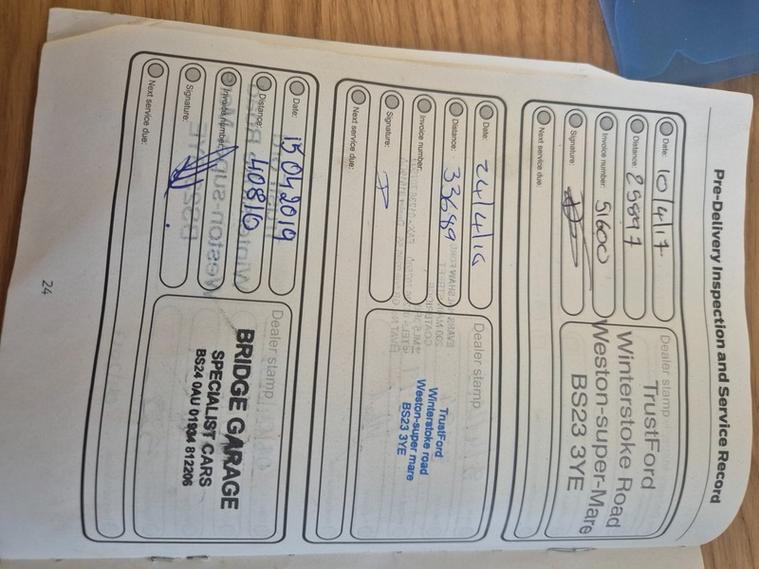 Pre-Delivery Inspection and Service Record
Date: 10/4/17
Distance: 25897
Invoice number: 51600
Signature:
Next service due:
Dealer stamp
TrustFord
Winterstoke Road
Weston-super-Mare
BS23 3YE
Date:
Distance: 33689
Invoice number:
Signature:
Next service due:
Dealer stamp
TrustFord
Winterstoke road
Weston-super mare
BS23 3YE
Date: 15 04 2019
Distance: 40810
Invoice number:
Signature:
Next service due:
Dealer stamp
BRIDGE GARAGE
SPECIALIST CARS
BS24 0AU 01934 812206
24